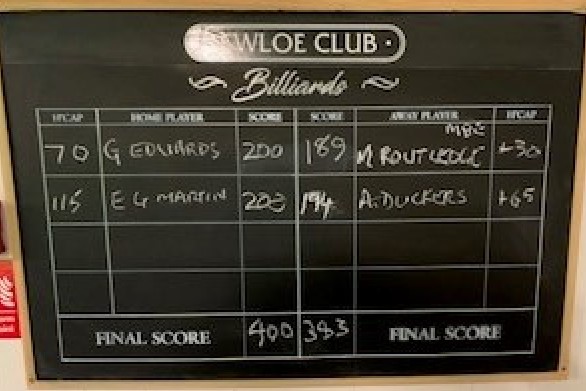 WLOE CLUB
Billiards
H'CAP HOME PLAYER SCORE SCORE AWAY PLAYER H'CAP
MBE
70 G EDWARDS 200 189 M ROUTLEDGE +30
115 E G MARTIN 200 194 A. DUCKERS +65
FINAL SCORE 400 383 FINAL SCORE